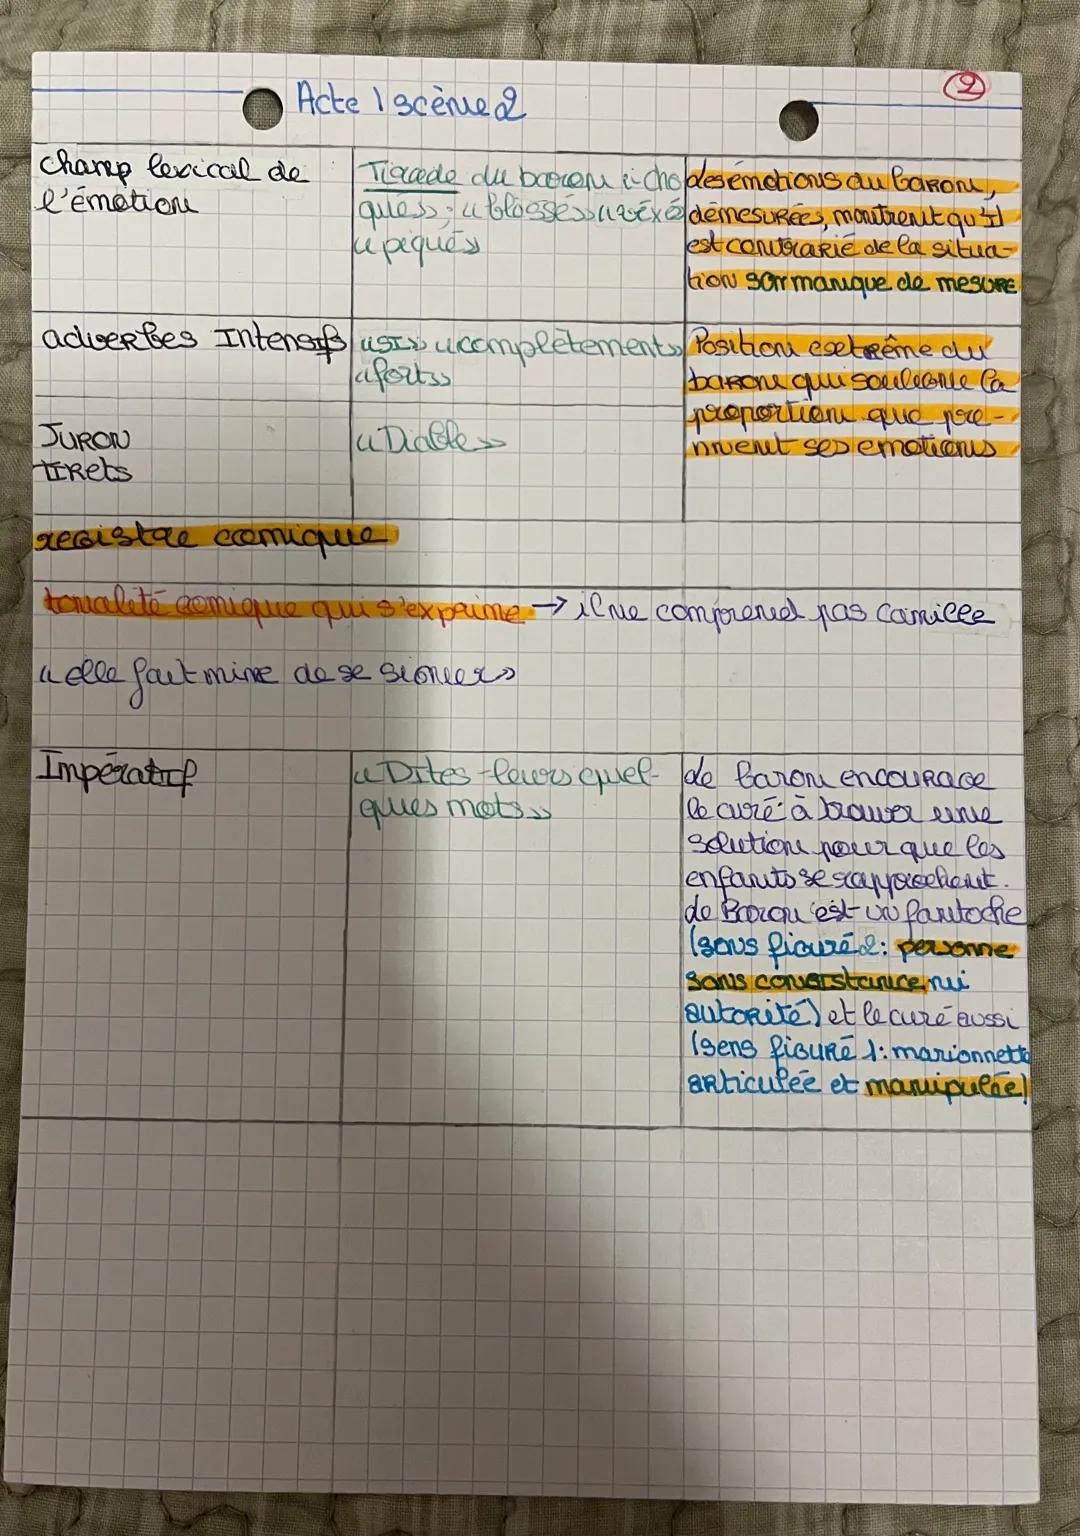 2
Acte 1 scène 2
champ lexical de
l'émotion
Tirade du baron « cho
qué » ; « blessé » « vexé »
« piqué »
des émotions du baron,
démesurées, montrent qu'il
est contrarié de la situa-
tion son manque de mesure
adverbes Intensifs
« SI » « complètement »
« fort »
Position extrême du
baron qui souligne la
proportion que pre-
nnent ses emotions
JURON
tIRets
« Diable »
registre comique
tonalité comique qui s'exprime → il ne comprend pas Camille
« elle fait mine de se signer »
Impératif
« Dites-leurs quel-
ques mots »
le baron encourage
le curé à trouver une
solution pour que les
enfants se rapprochent.
le Baron est un fantoche
(sens figuré 2 : personne
sans consistance, ni
autorité) et le curé aussi
(sens figuré 1 : marionnette
articulée et manipulée)